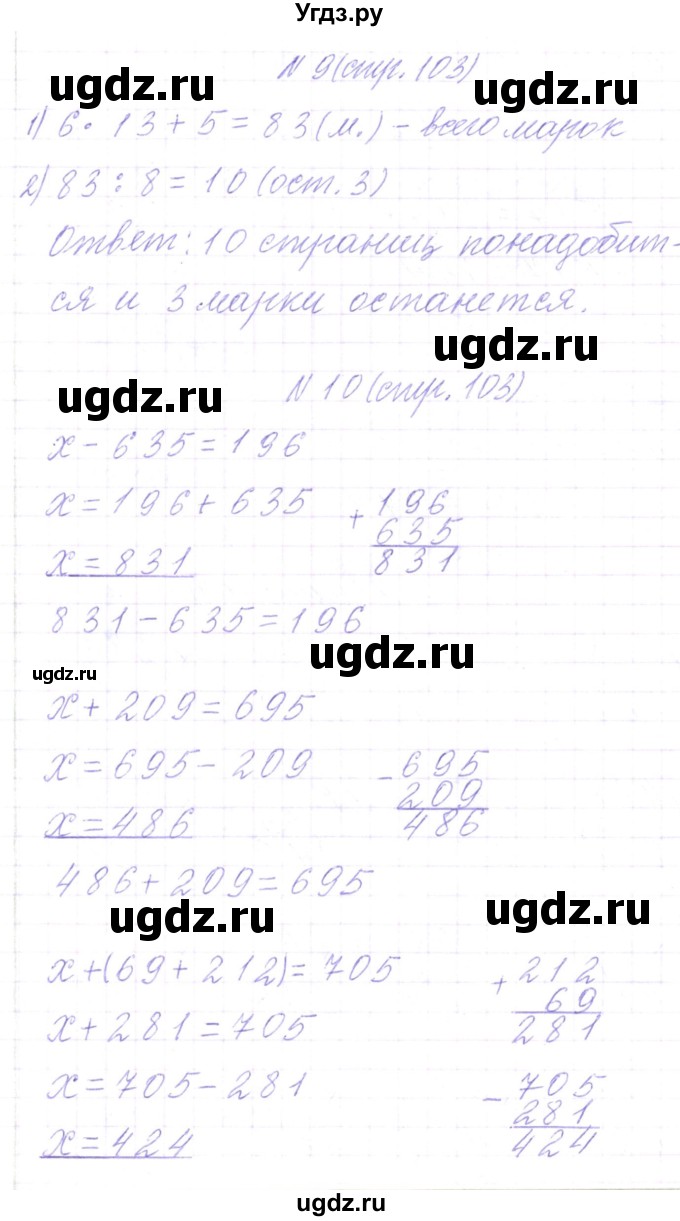 Угдз.ру
N 9 (стр. 103)
ugdz.ru
ugdz.ru
1) 6 · 13 + 5 = 83 (м.) - всего марок
2) 83 : 8 = 10 (ост. 3)
Ответ: 10 страниц понадобит-
ся и 3 марки останется.
ugdz.ru
N 10 (стр. 103)
ugdz.ru
x - 635 = 196
x = 196 + 635
x = 831
+ 196
635
831
831 - 635 = 196
ugdz.ru
ugdz.ru
x + 209 = 695
x = 695 - 209
x = 486
- 695
209
486
486 + 209 = 695
ugdz.ru
ugdz.ru
x + (69 + 212) = 705
x + 281 = 705
x = 705 - 281
x = 424
+ 212
69
281
- 705
281
424
ugdz.ru